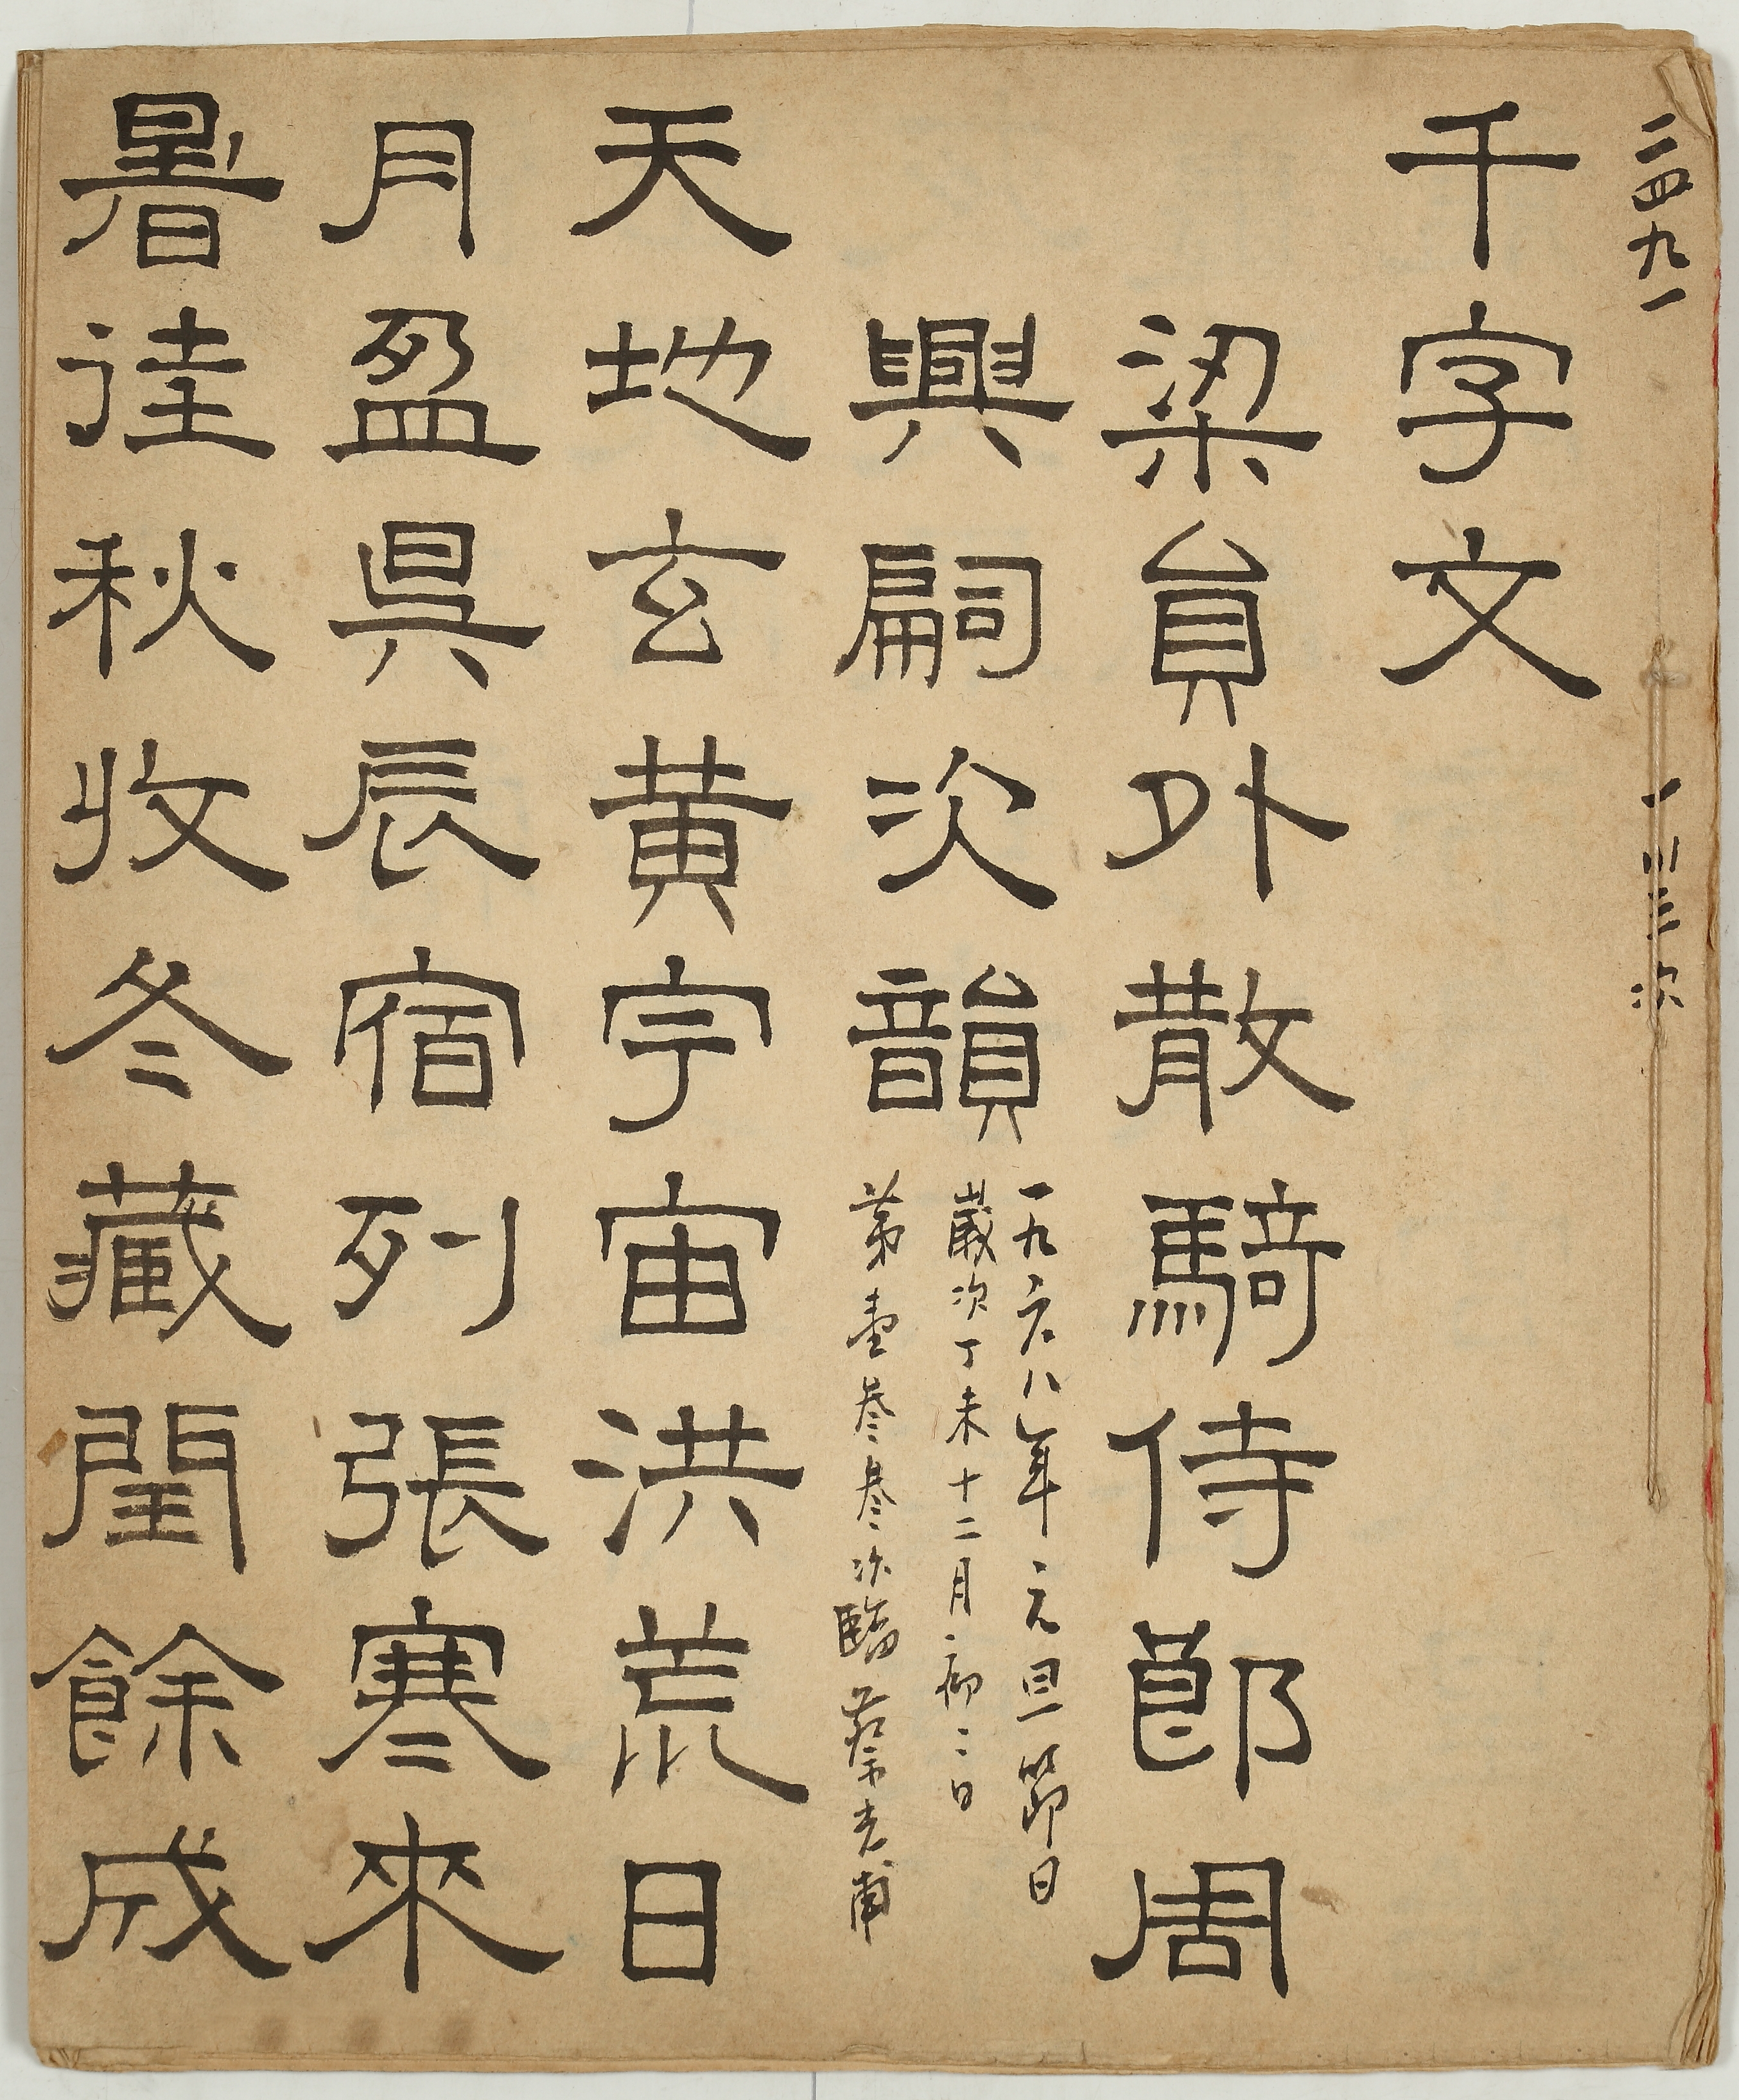 二四九一
一川三次
千字文
梁員外散騎侍郎周
興嗣次韻
一九六八年元旦節日
歲次丁未十二月初二日
第壹叁叁次臨 蔡光甫
天地玄黃宇宙洪荒日
月盈昃辰宿列張寒來
暑往秋收冬藏閏餘成